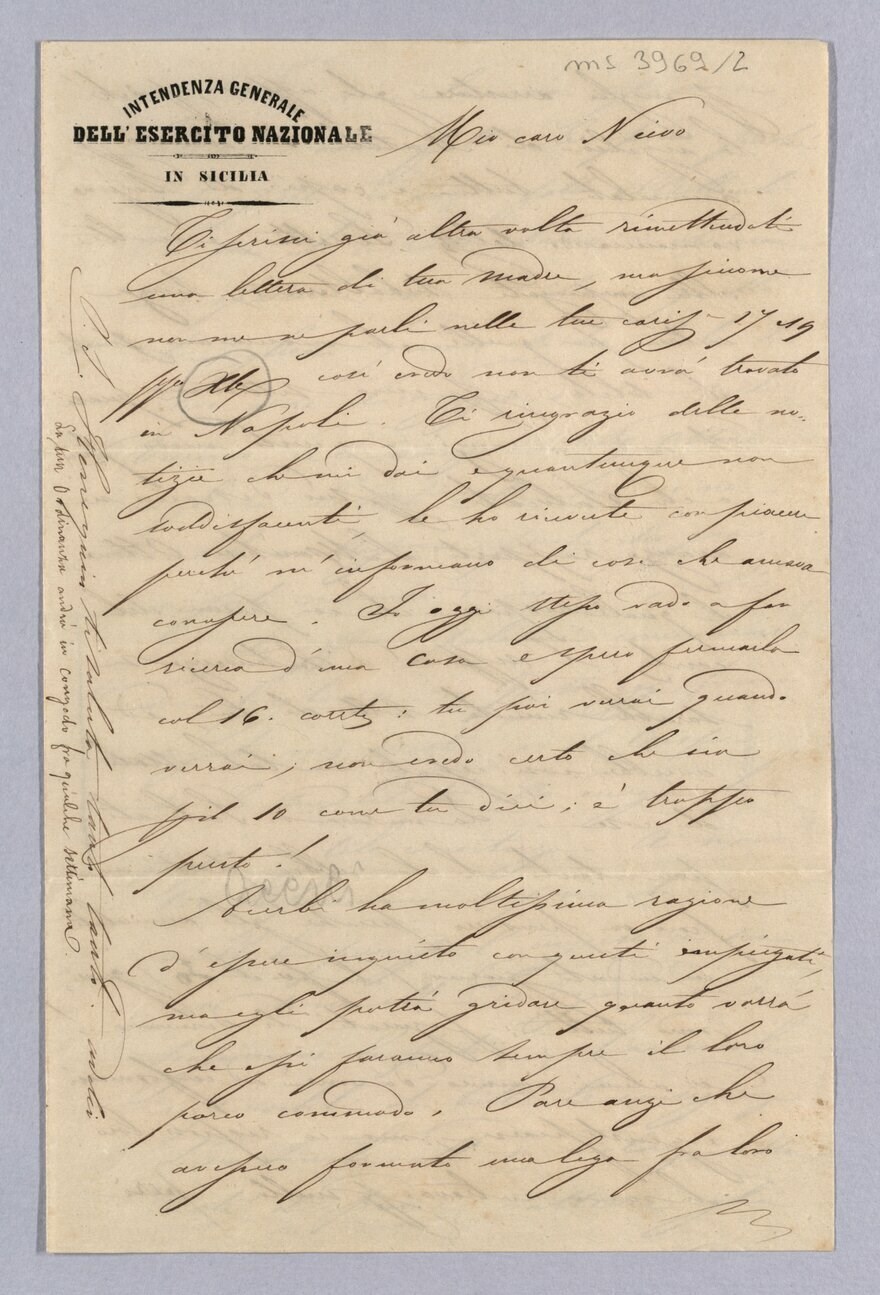 ms 3969/2
INTENDENZA GENERALE
DELL'ESERCITO NAZIONALE
IN SICILIA
Mio caro Nievo
Ti scrissi già altra volta rimettendoti
una lettera di tua madre, ma siccome
non me ne parli nelle tue cariss. 17 e 19
Xbre così credo non ti avrà trovato
in Napoli. Ti ringrazio delle no-
tizie che mi dai e quantunque non
soddisfacenti le ho ricevute con piacere
perché m'informano di cose che amava
conoscere. Io oggi stesso vado a far
ricerca d'una casa e spero fermarla
col 16. corrte: tu poi verrai quando
verrai; non credo certo che sia
pel 10 come tu dici; è troppo
presto!
Acerbi
Acerbi ha moltissima ragione
d'essere inquieto con questi impiegati,
ma egli potrà gridare quanto vorrà
che essi faranno sempre il loro
porco commodo. Pare anzi che
avessero formato una lega fra loro
P.S. Hennequin ti saluta tanto tanto.
La tua Ordinanza andrà in congedo fra qualche settimana.